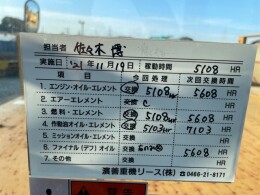 担当者 佐々木
実施日 '21年11月19日 稼動時間 5108 HR
項目 今回処理 次回交換時間
1. エンジン・オイル・エレメント 交換 5108HR 5608 HR
2. エアー・エレメント 交換 HR
3. 燃料・エレメント 交換 5108HR 5608 HR
4. 作動油オイル・エレメント 交換 5103HR 7103 HR
5. ミッションオイル・エレメント HR
6. ファイナル(デフ)オイル 5608 HR
7. その他 HR
濱善重機リース(株) ☎0466-21-8171